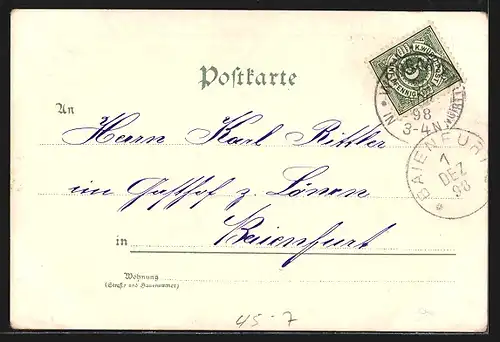 Postkarte
K. WÜRTT. POST
5
PFENNIG
98
3-4 N
An
Herrn Karl Rittler
im Gasthof z. Löwen
in Baienfurt
BAIENFURT
1
DEZ
98
Wohnung
(Straße und Hausnummer)
45-7